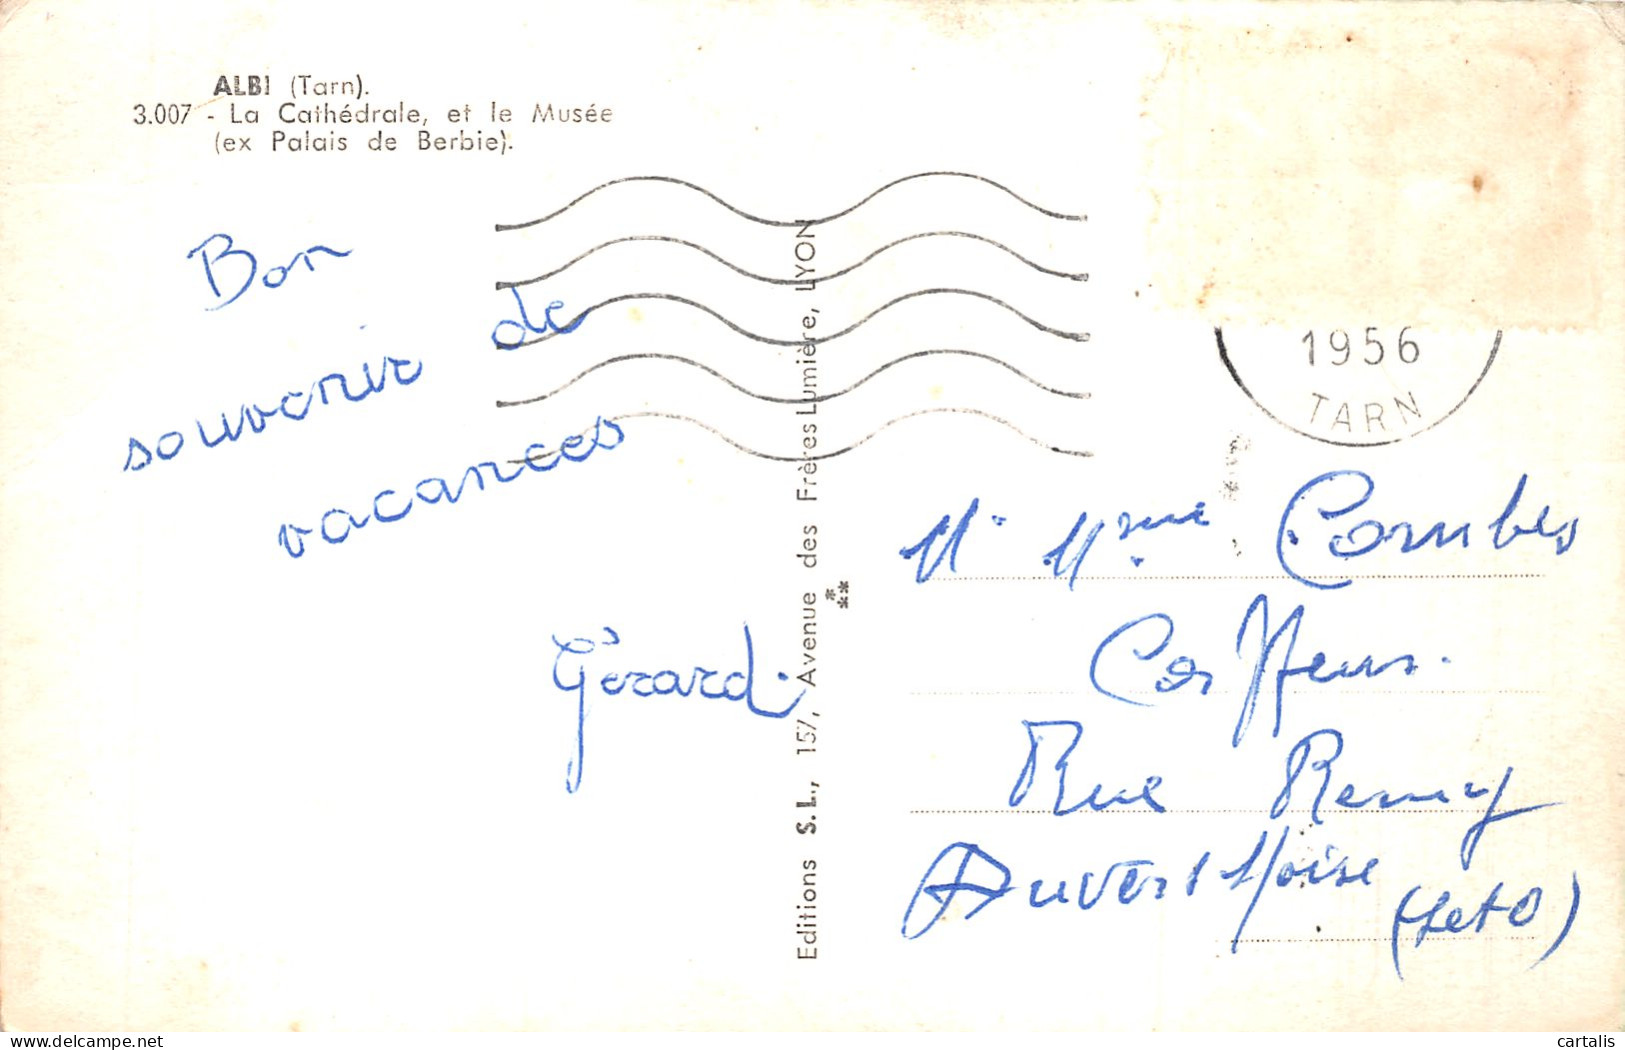 ALBI (Tarn).
3.007 - La Cathédrale, et le Musée
(ex Palais de Berbie).
Bon
souvenir de
vacances
Gérard.
Editions S.L., 157, Avenue des Frères Lumière, LYON
1956
TARN
M. Mme Combes
Coiffeur.
Rue Remy
Auvers s/Oise
(S et O)
delcampe.net
cartalis